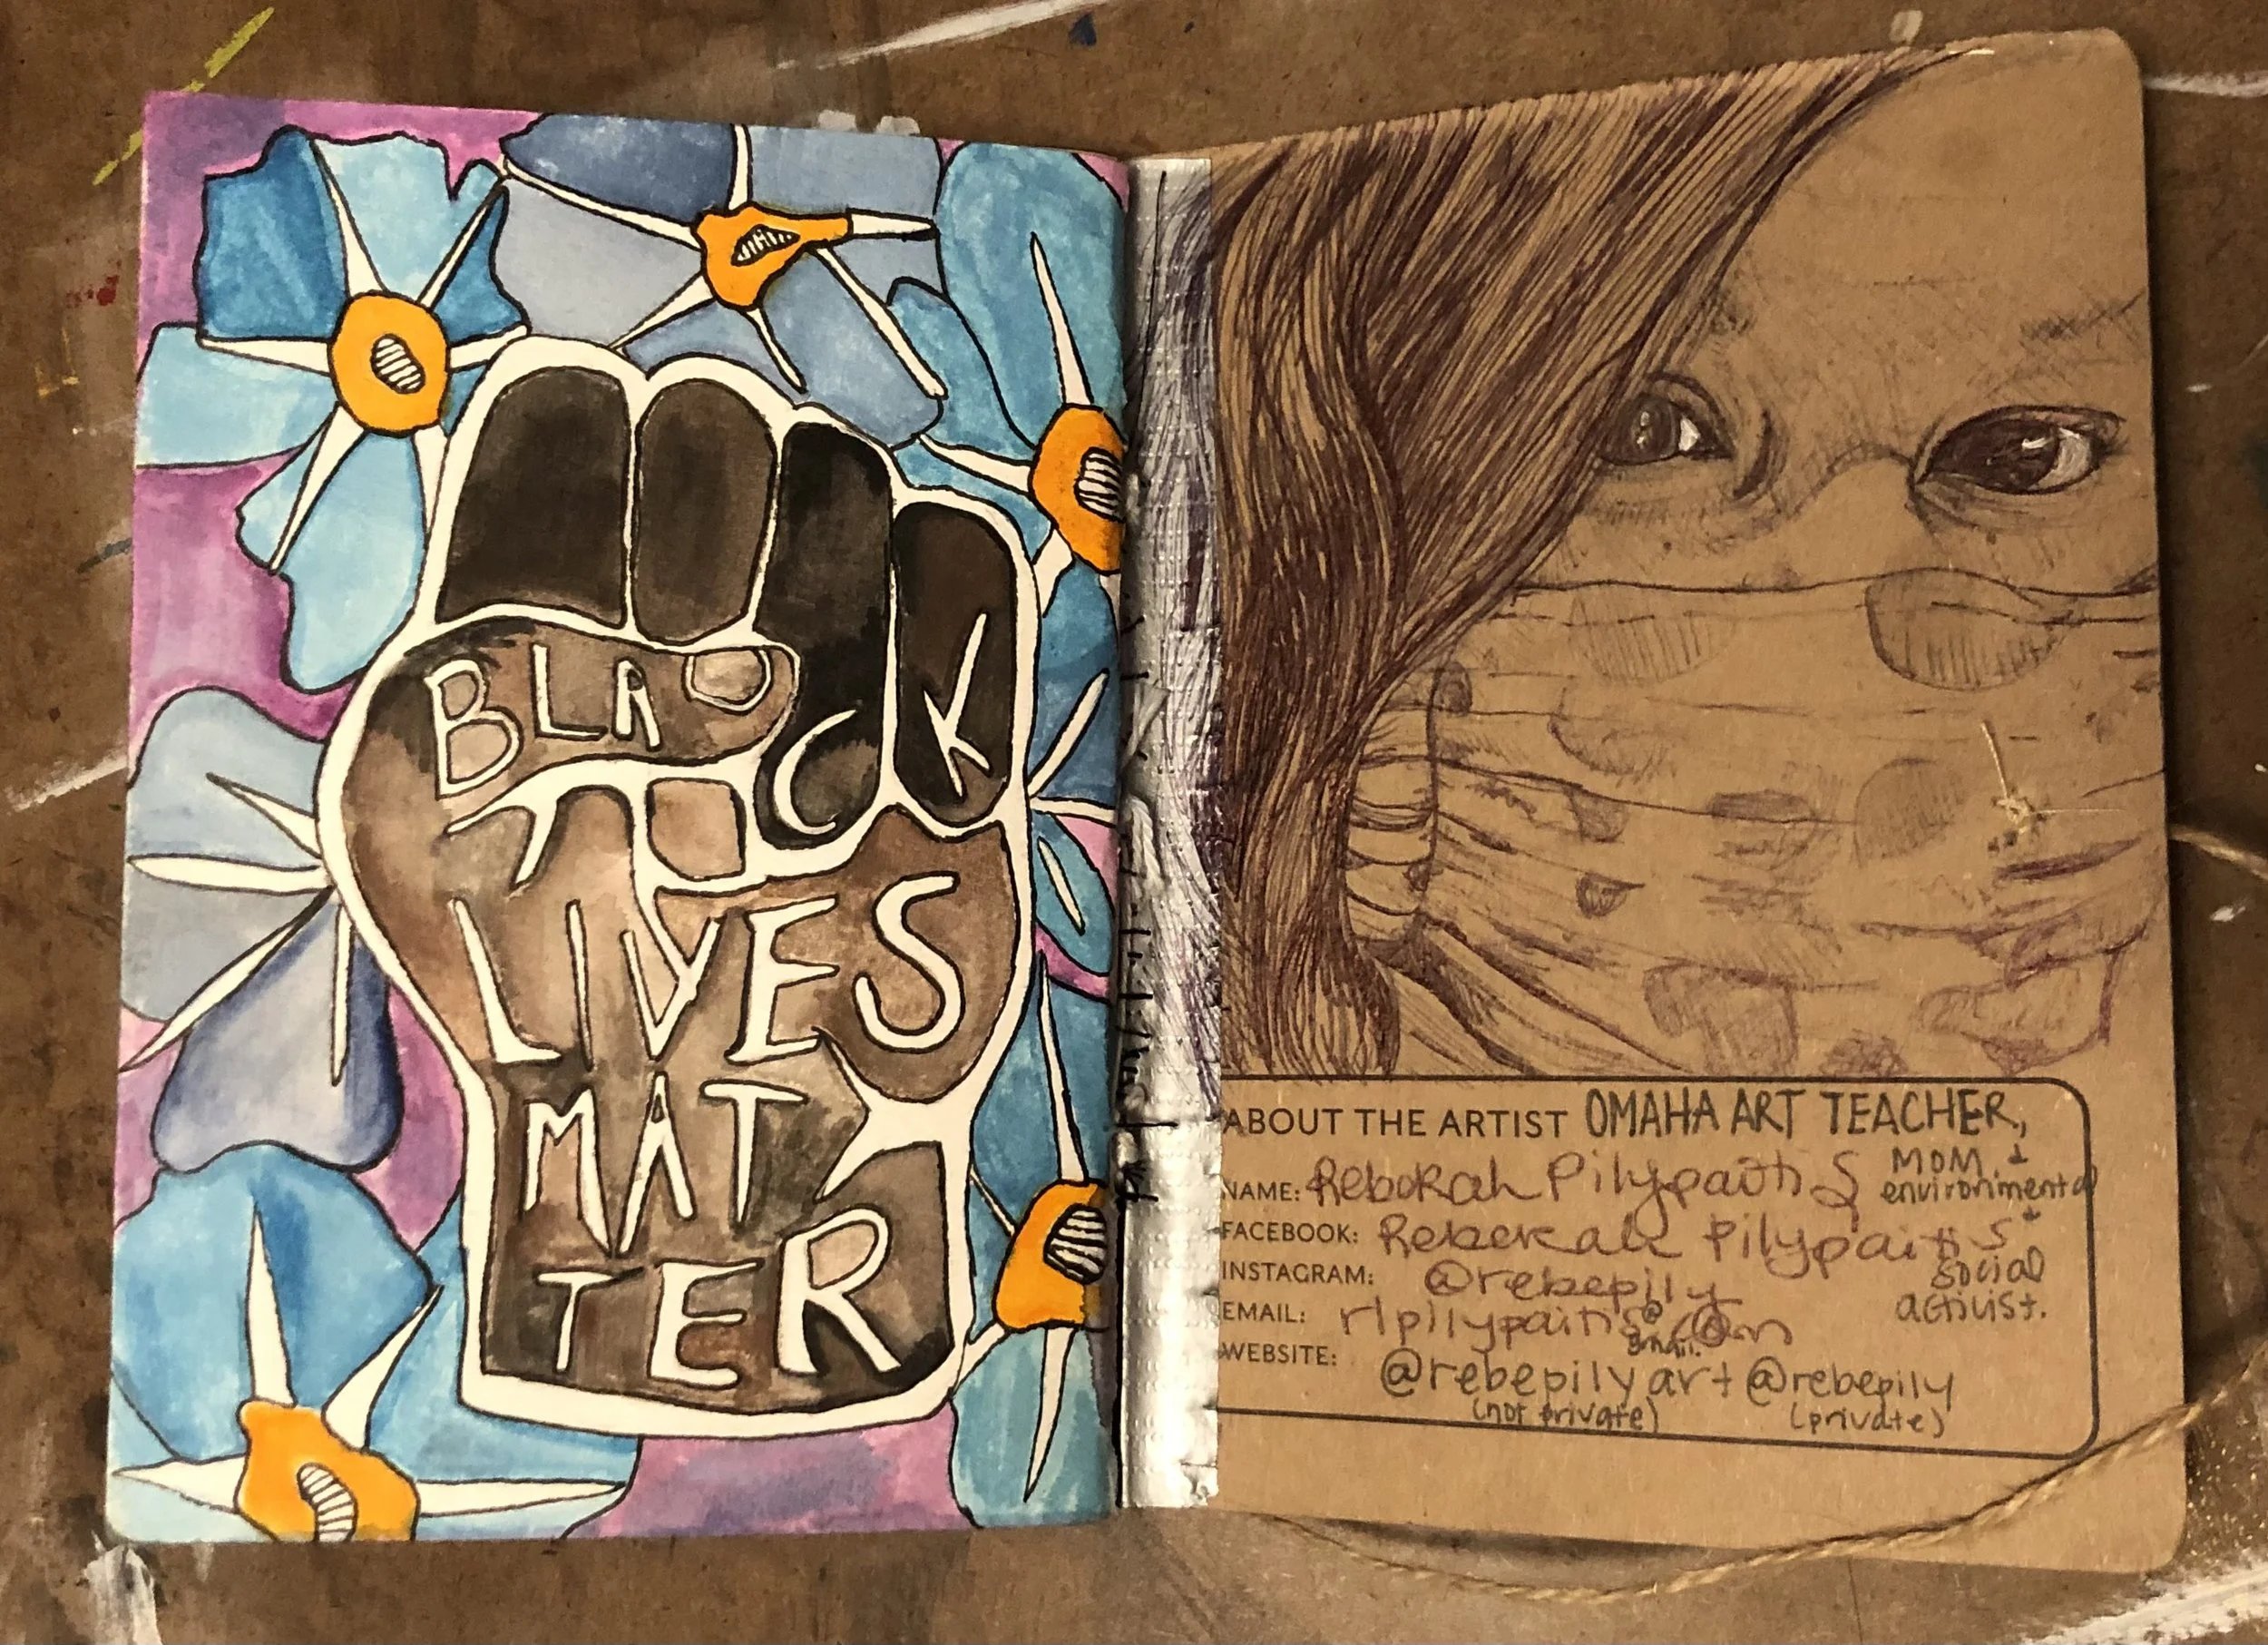 BLACK
LIVES
MAT
TER
ABOUT THE ARTIST OMAHA ART TEACHER,
MOM &
environmental
&
social
activist.
NAME: Rebekah Pilypaitis
FACEBOOK: Rebekah Pilypaitis
INSTAGRAM: @rebepily
EMAIL: rlpilypaitis@
gmail.com
WEBSITE:
@rebepilyart @rebepily
(not private) (private)